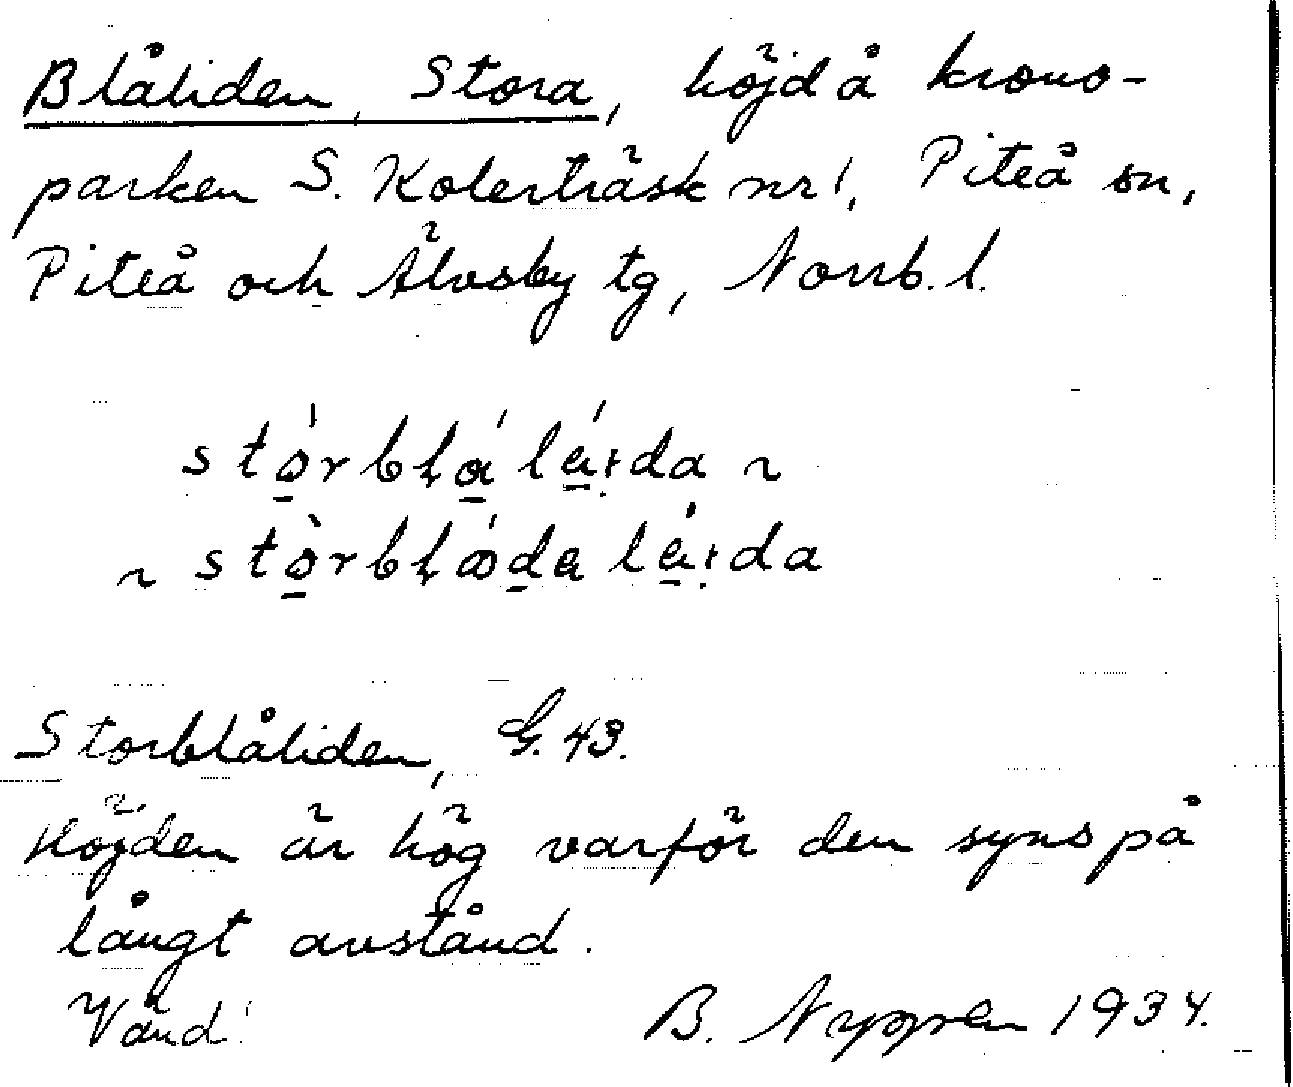 Blåliden, Stora, höjd å krono-
parken S. Kolerträsk nr 1, Piteå sn,
Piteå och Älvsby tg, Norrb. l.
stó̱rblɑ̱́ lá̱i̯da ~
~ stò̱rblǿḏa lá̱i̯da
Storblåliden, G. 43.
Höjden är hög varför den syns på
långt avstånd.
Vänd! B. Nyggren 1934.